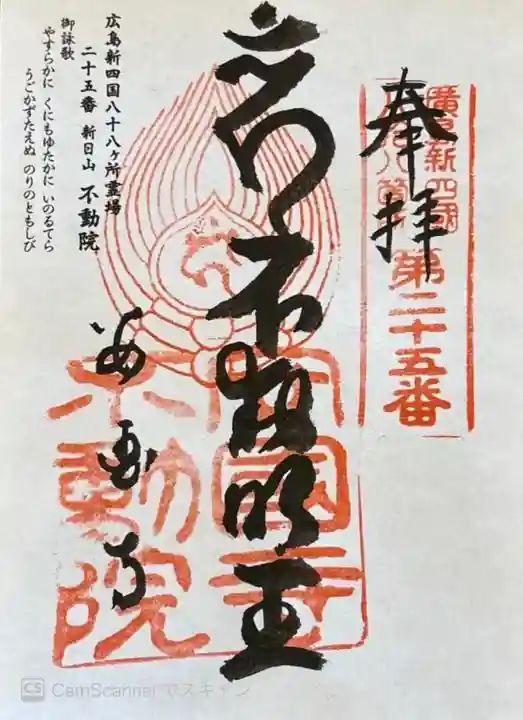 奉拝
廣島新四國
第二十五番
不動明王
安國寺
不動院
安国寺
広島新四国八十八ヶ所霊場
二十五番 新日山 不動院
御詠歌
やすらかに くにもゆたかに いのるてら
うごかずたえぬ のりのともしび
CS CamScannerでスキャン